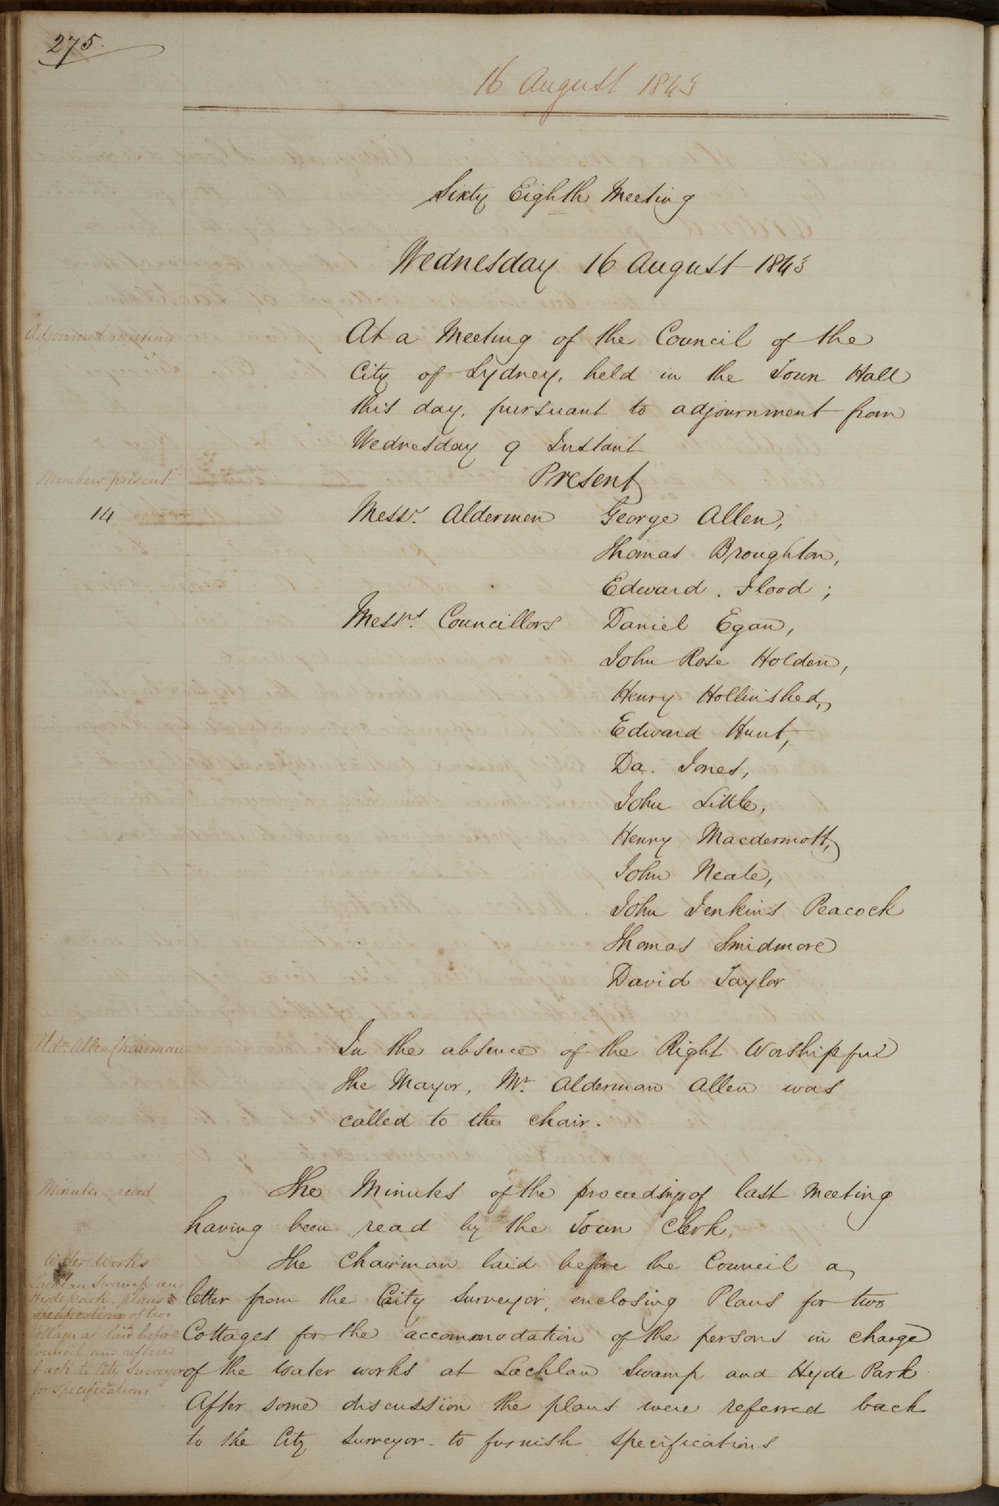 275.
16 August 1843
Sixty Eighth Meeting
Wednesday 16 August 1843
Adjourned meeting
At a Meeting of the Council of the
City of Sydney, held in the Town Hall
this day, pursuant to adjournment from
Wednesday 9 Instant
Members present
Present
14
Messrs. Aldermen George Allen,
Thomas Broughton,
Edward. Flood;
Messrs. Councillors Daniel Egan,
John Rose Holden,
Henry Hollinshed,
Edward Hunt,
Da. Jones,
John Little,
Henry Macdermott,
John Neale,
John Jenkins Peacock
Thomas Smidmore
David Taylor
Aldn. Allen Chairman
In the absence of the Right Worshipful
the Mayor, Mr. Alderman Allen was
called to the chair.
Minutes read
The Minutes of the proceedings of last meeting
having been read by the Town Clerk,
Water Works
Lachlan Swamp and
Hyde Park, plans &
specifications of two
cottages laid before
Council and referred
back to City Surveyor
for specifications
The Chairman laid before the Council a
letter from the City Surveyor, enclosing Plans for two
Cottages for the accommodation of the persons in charge
of the water works at Lachlan Swamp and Hyde Park
After some discussion the plans were referred back
to the City Surveyor to furnish specifications